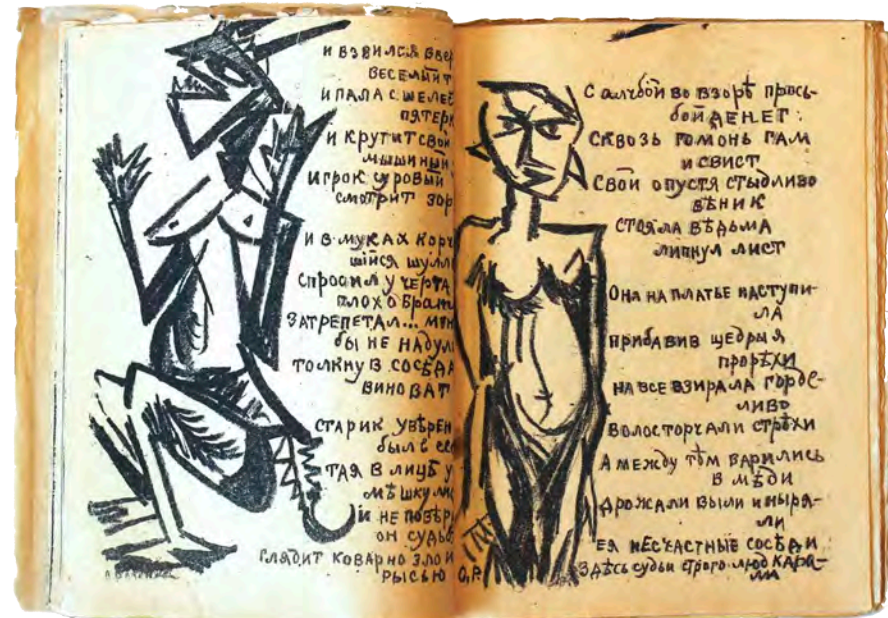 И ВЗВИЛСЯ ВВЕР
ВЕСЕЛЫЙ Т
И ПАЛА С ШЕЛЕС
ПЯТЕРК
И КРУТИТ СВОЙ
МЫШИНЫЙ
ИГРОК СУРОВЫЙ
СМОТРИТ ЗОР
И В МУКАХ КОРЧ
ШИЙСЯ ШУЛЛ
СПРОСИЛ У ЧЕРТА
ПЛОХО БРАТ
ЗАТРЕПЕТАЛ... МЕН
БЫ НЕ НАДУЛ
ТОЛКНУВ СОСѢДА
ВИНОВАТ
СТАРИК УВѢРЕН
БЫЛ В СЕ
ТАЯ В ЛИЦѢ У
МѢШКУ
И НЕ ПОВѢР
ОН СУДЬБ
ГЛЯДИТ КОВАРНО ЗЛО И
РЫСЬЮ
С АЛЧБОЙ ВО ВЗОРѢ ПРОСЬ-
БОЙ ДЕНЕГ:
СКВОЗЬ ГОМОНЬ ГАМ
И СВИСТ
СВОЙ ОПУСТЯ СТЫДЛИВО
ВѢНИК
СТОЯЛА ВѢДЬМА
ЛИПНУЛ ЛИСТ
ОНА НА ПЛАТЬЕ НАСТУПИ-
ЛА
ПРИБАВИВ ЩЕДРЫЯ
ПРОРѢХИ
НА ВСЕ ВЗИРАЛА ГОРДЕ-
ЛИВО
ВОЛОС ТОРЧАЛИ СТРѢХИ
А МЕЖДУ ТѢМ ВАРИЛИСЬ
В МѢДИ
ДРОЖАЛИ ВЫЛИ И НЫРЯ-
ЛИ
ЕЯ НЕСЧАСТНЫЕ СОСѢДИ
ЗДѢСЬ СУДЬИ СТРОГО ЛЮД КАРА-
ЛИ
О.Р.